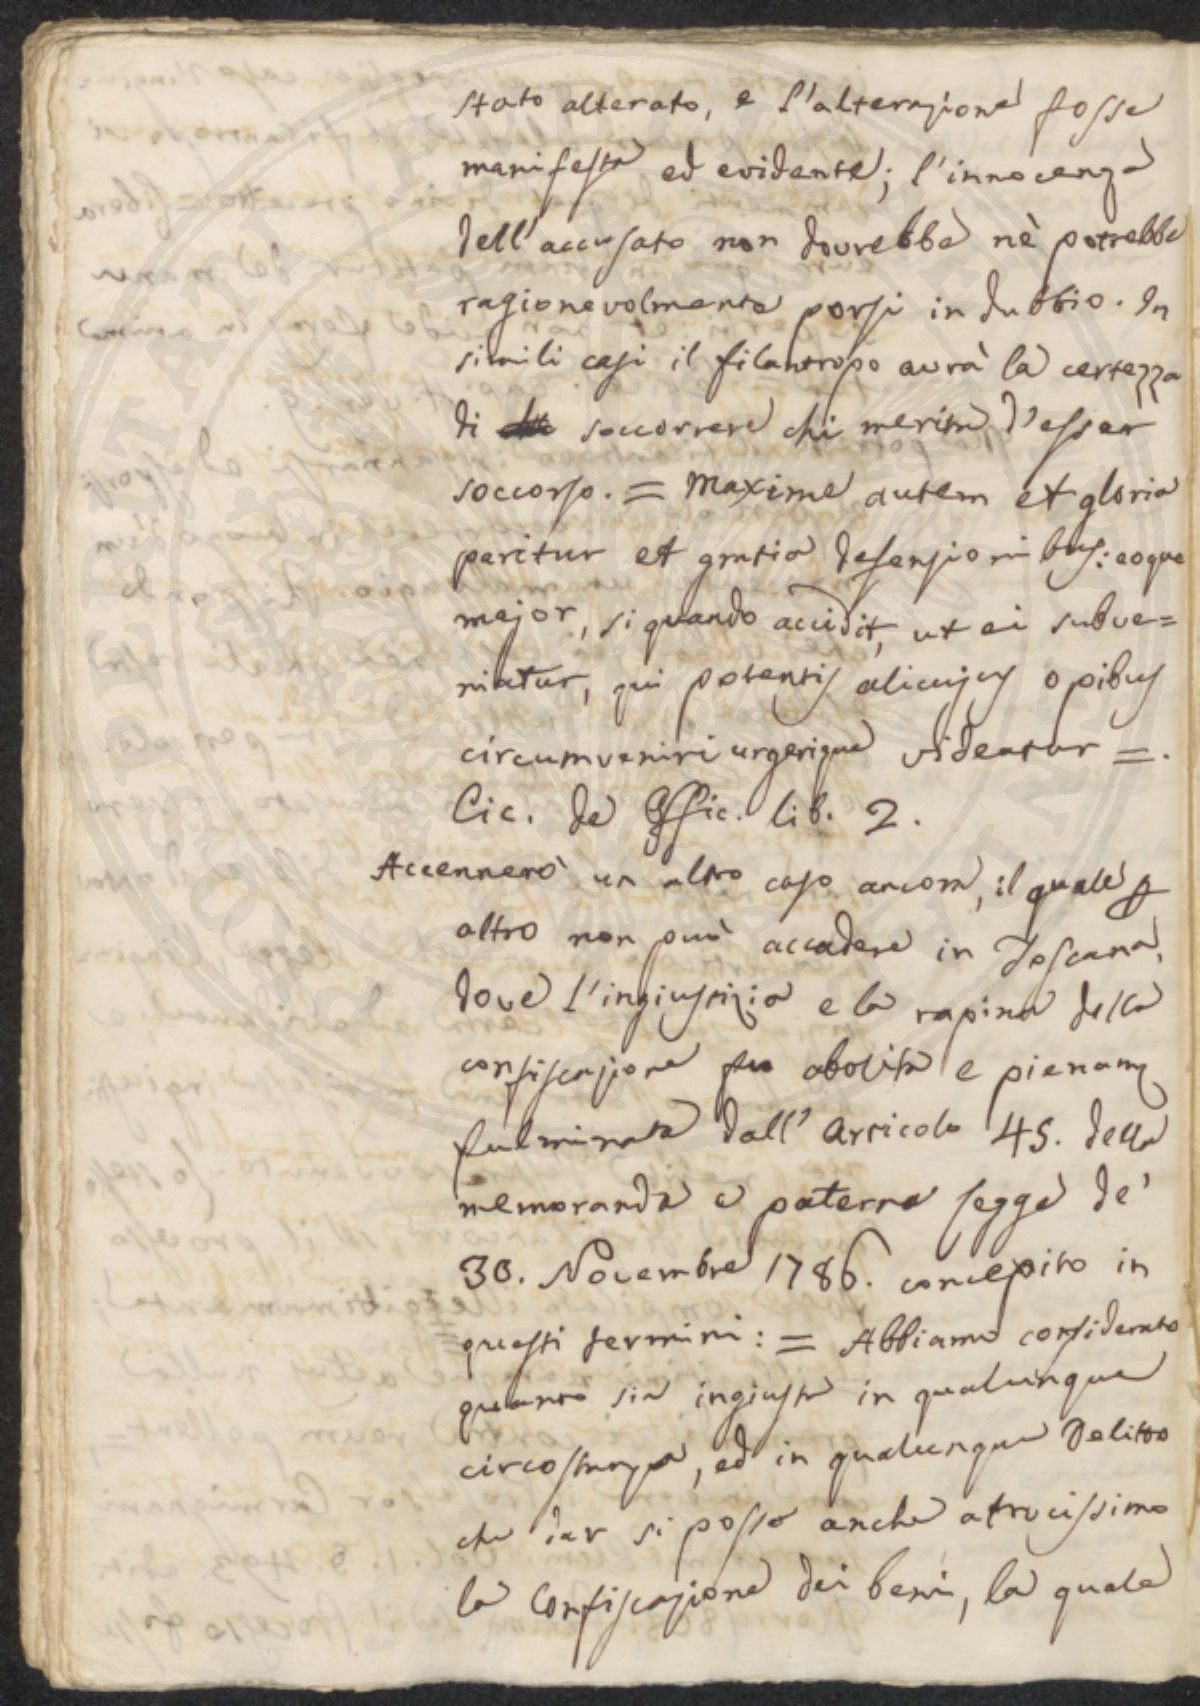 stato alterato, e l'alterazione fosse
manifesta ed evidente; l'innocenza
dell'accusato non dovrebbe nè potrebbe
ragionevolmente porsi in dubbio. In
simili casi il filantropo avrà la certezza
di soccorrere chi merita d'esser
soccorso. = Maxime autem et gloria
paritur et gratia defensionibus: eoque
major, si quando accidit, ut ei subve=
niatur, qui potentis alicujus opibus
circumveniri urgerique videatur =.
Cic. de Offic. lib. 2.
Accennerò un altro caso ancora, il quale
altro non può accadere in Toscana,
dove l'ingiustizia e la rapina della
confiscazione fu abolita e pienam
fulminata dall'Articolo 45. della
memoranda e paterna legge de'
30. Novembre 1786. concepito in
questi termini: = Abbiamo considerato
quanto sia ingiusta in qualunque
circostanza, ed in qualunque Delitto
che dar si possa anche atrocissimo
la Confiscazione dei beni, la quale